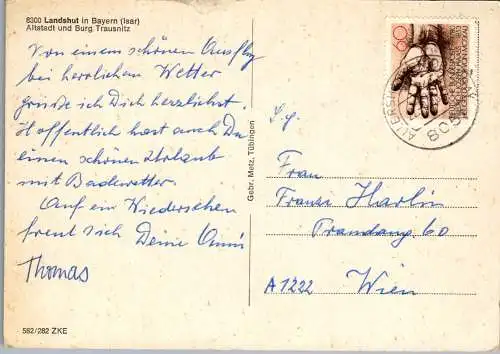 8300 Landshut in Bayern (Isar)
Altstadt und Burg Trausnitz
Von einem schönen Ausflug
bei herrlichem Wetter
grüße ich Dich herzlichst.
Hoffentlich hast auch Du
einen schönen Urlaub
mit Badewetter.
Auf ein Wiedersehen
freut sich Deine Omi
Thomas
582/282 ZKE
Gebr. Metz, Tübingen
60
Frau
Franzi Harlin
60
A1222 Wien